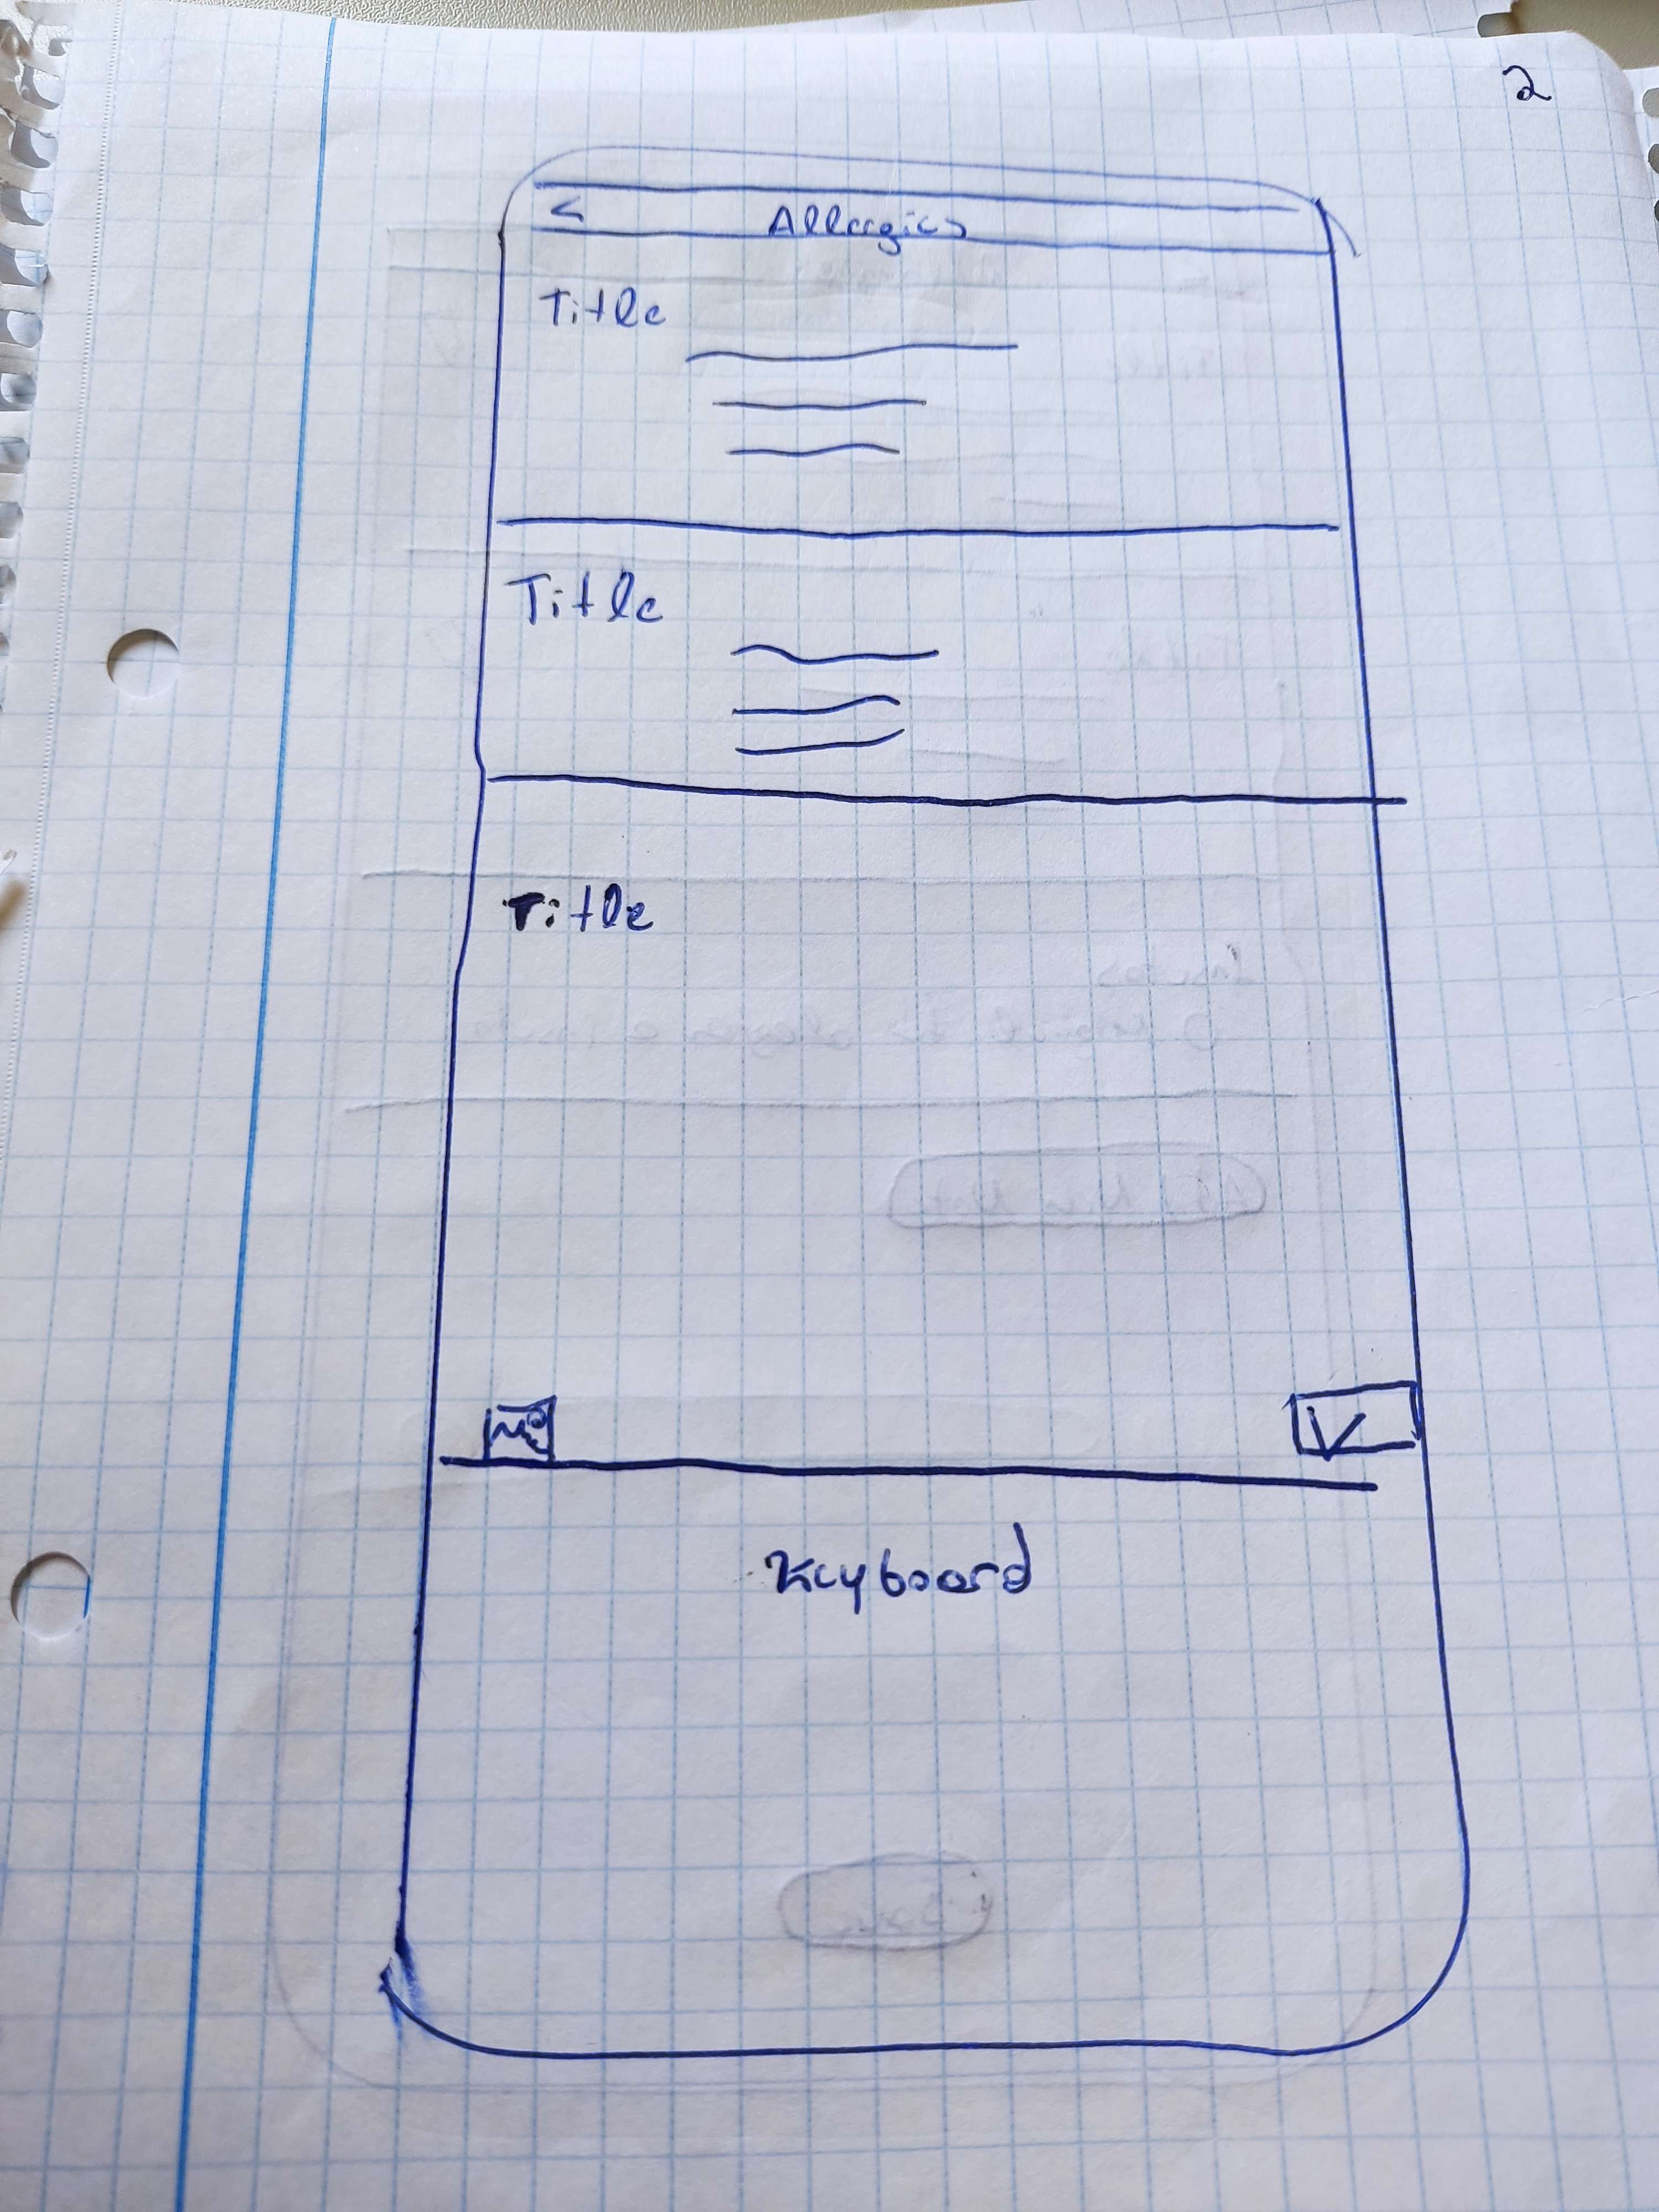 2
< Allergies
Title
Title
Title
Keyboard